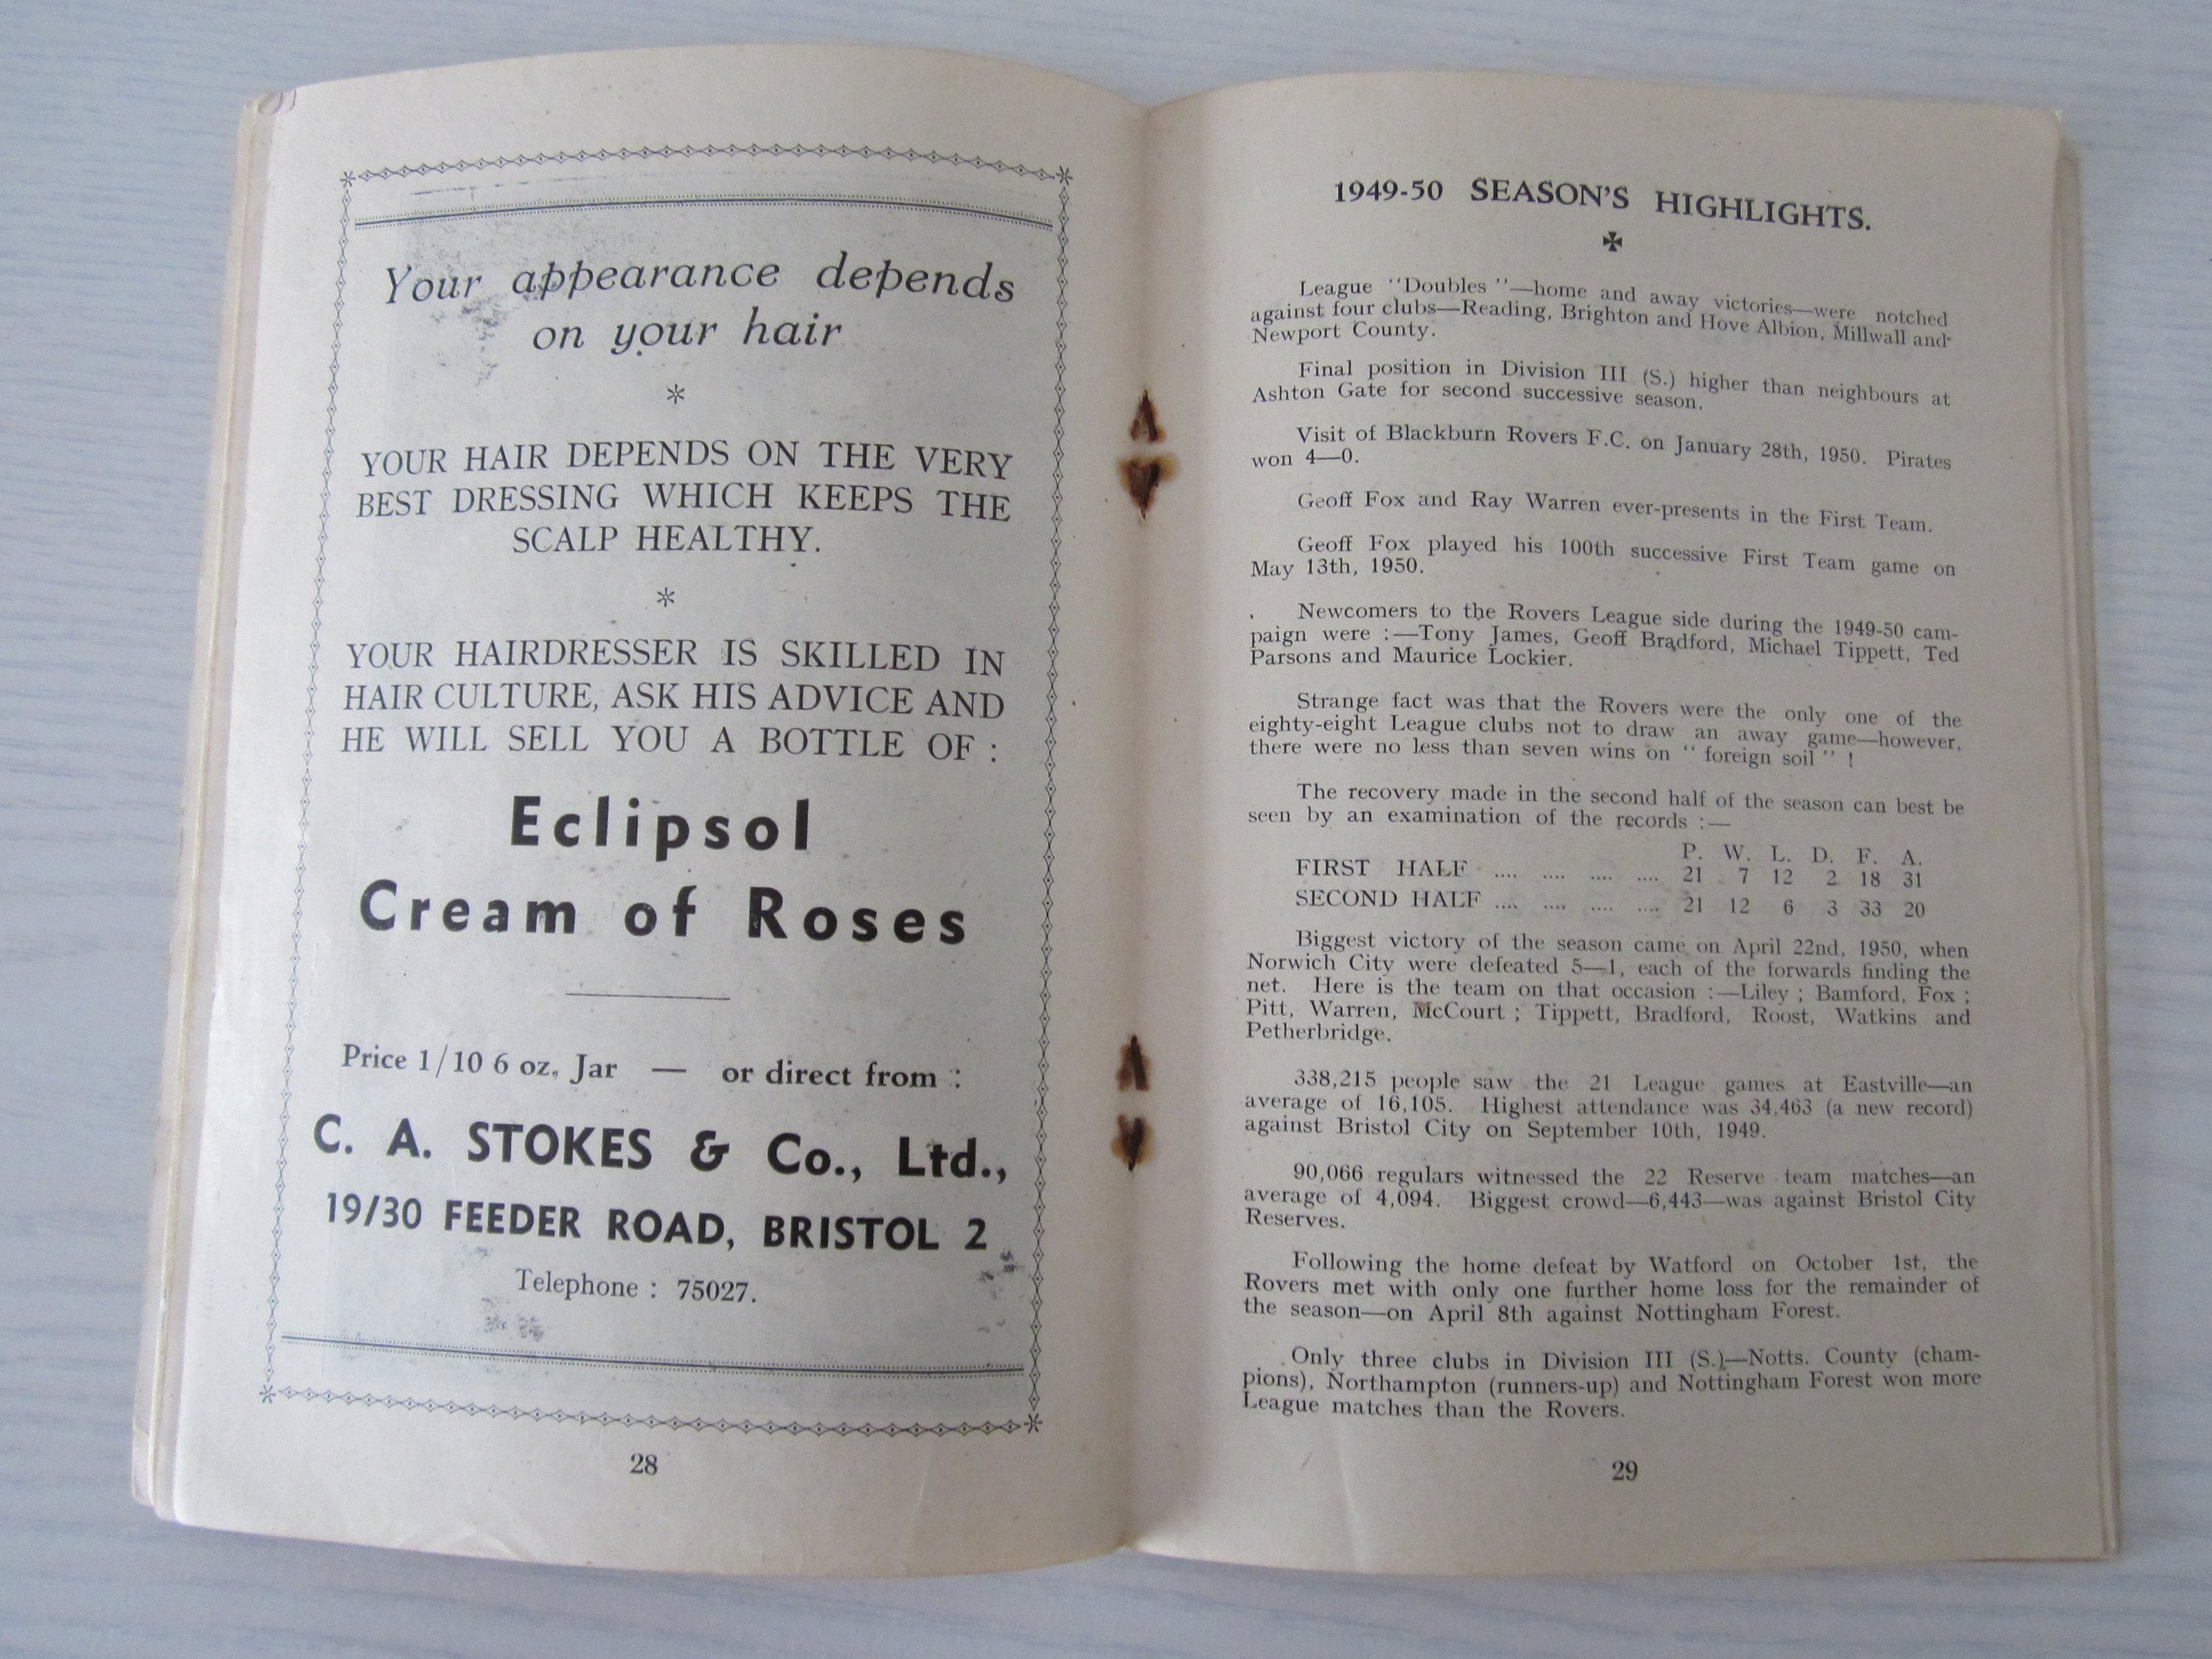 Your appearance depends
on your hair
*
YOUR HAIR DEPENDS ON THE VERY
BEST DRESSING WHICH KEEPS THE
SCALP HEALTHY.
*
YOUR HAIRDRESSER IS SKILLED IN
HAIR CULTURE, ASK HIS ADVICE AND
HE WILL SELL YOU A BOTTLE OF :
Eclipsol
Cream of Roses
Price 1/10 6 oz. Jar — or direct from :
C. A. STOKES & Co., Ltd.,
19/30 FEEDER ROAD, BRISTOL 2
Telephone : 75027.
28
1949-50 SEASON'S HIGHLIGHTS.
League "Doubles"—home and away victories—were notched
against four clubs—Reading, Brighton and Hove Albion, Millwall and
Newport County.
Final position in Division III (S.) higher than neighbours at
Ashton Gate for second successive season.
Visit of Blackburn Rovers F.C. on January 28th, 1950. Pirates
won 4—0.
Geoff Fox and Ray Warren ever-presents in the First Team.
Geoff Fox played his 100th successive First Team game on
May 13th, 1950.
Newcomers to the Rovers League side during the 1949-50 cam-
paign were :—Tony James, Geoff Bradford, Michael Tippett, Ted
Parsons and Maurice Lockier.
Strange fact was that the Rovers were the only one of the
eighty-eight League clubs not to draw an away game—however,
there were no less than seven wins on " foreign soil " !
The recovery made in the second half of the season can best be
seen by an examination of the records :—
P. W. L. D. F. A.
FIRST HALF .... .... .... .... 21 7 12 2 18 31
SECOND HALF .... .... .... .... 21 12 6 3 33 20
Biggest victory of the season came on April 22nd, 1950, when
Norwich City were defeated 5—1, each of the forwards finding the
net. Here is the team on that occasion :—Liley ; Bamford, Fox ;
Pitt, Warren, McCourt ; Tippett, Bradford, Roost, Watkins and
Petherbridge.
338,215 people saw the 21 League games at Eastville—an
average of 16,105. Highest attendance was 34,463 (a new record)
against Bristol City on September 10th, 1949.
90,066 regulars witnessed the 22 Reserve team matches—an
average of 4,094. Biggest crowd—6,443—was against Bristol City
Reserves.
Following the home defeat by Watford on October 1st, the
Rovers met with only one further home loss for the remainder of
the season—on April 8th against Nottingham Forest.
Only three clubs in Division III (S.)—Notts. County (cham-
pions), Northampton (runners-up) and Nottingham Forest won more
League matches than the Rovers.
29